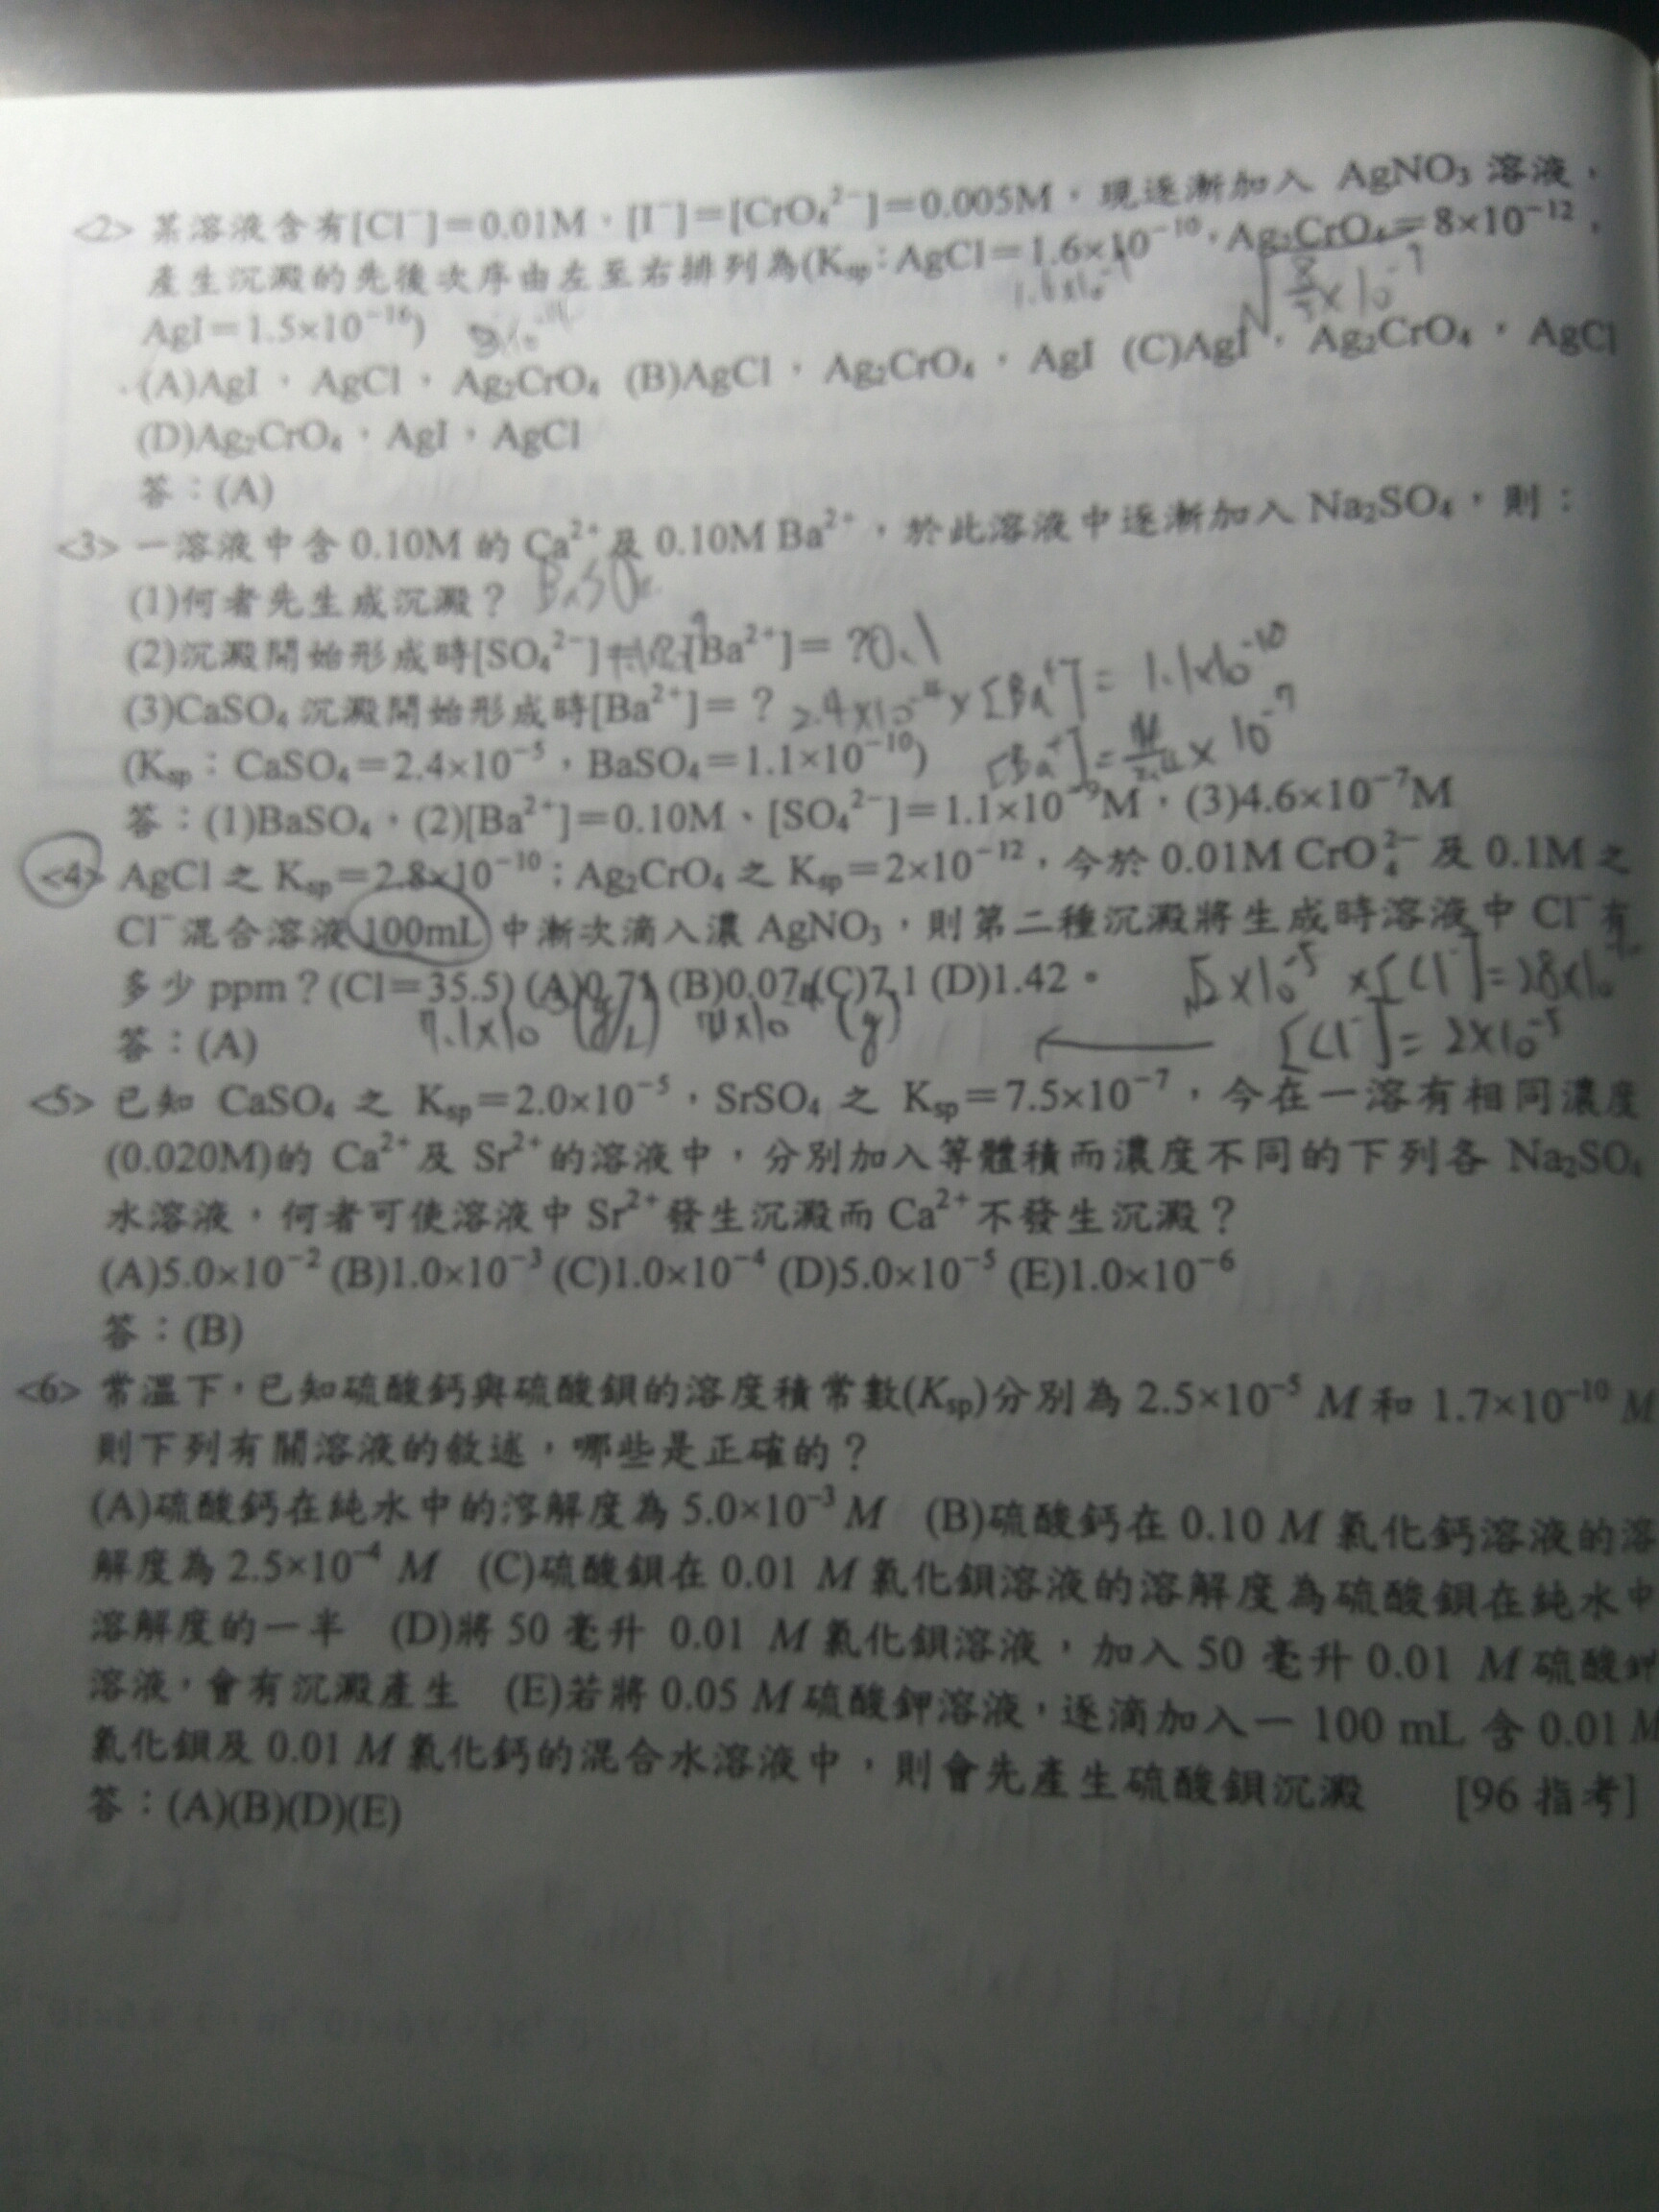 <2> 某溶液含有[Cl⁻]=0.01M，[I⁻]=[CrO₄²⁻]=0.005M，現逐漸加入 AgNO₃ 溶液，
產生沉澱的先後次序由左至右排列為(Ksp：AgCl=1.6×10⁻¹⁰，Ag₂CrO₄=8×10⁻¹²，
AgI=1.5×10⁻¹⁶)
(A)AgI，AgCl，Ag₂CrO₄ (B)AgCl，Ag₂CrO₄，AgI (C)AgI，Ag₂CrO₄，AgCl
(D)Ag₂CrO₄，AgI，AgCl
答：(A)
<3> 一溶液中含 0.10M 的 Ca²⁺及 0.10M Ba²⁺，於此溶液中逐漸加入 Na₂SO₄，則：
(1)何者先生成沉澱？ BaSO₄
(2)沉澱開始形成時[SO₄²⁻]=？[Ba²⁺]=？0.1
(3)CaSO₄ 沉澱開始形成時[Ba²⁺]=？ 2.4×10⁻⁴×[Ba²⁺]=1.1×10⁻¹⁰
(Ksp：CaSO₄=2.4×10⁻⁵，BaSO₄=1.1×10⁻¹⁰) [Ba²⁺]= ×10⁻⁷
答：(1)BaSO₄，(2)[Ba²⁺]=0.10M、[SO₄²⁻]=1.1×10⁻⁹M，(3)4.6×10⁻⁷M
<4> AgCl 之 Ksp=2.8×10⁻¹⁰；Ag₂CrO₄ 之 Ksp=2×10⁻¹²，今於 0.01M CrO₄²⁻ 及 0.1M 之
Cl⁻混合溶液 100mL 中漸次滴入濃 AgNO₃，則第二種沉澱將生成時溶液中 Cl⁻有
多少 ppm？(Cl=35.5) (A)0.71 (B)0.07 (C)7.1 (D)1.42。 √2×10⁻⁵ ×[Cl⁻]=2.8×10
答：(A) 7.1×10 (g/L) 71×10 (g) [Cl⁻]=2×10⁻⁵
<5> 已知 CaSO₄ 之 Ksp=2.0×10⁻⁵，SrSO₄ 之 Ksp=7.5×10⁻⁷，今在一溶有相同濃度
(0.020M)的 Ca²⁺及 Sr²⁺的溶液中，分別加入等體積而濃度不同的下列各 Na₂SO₄
水溶液，何者可使溶液中 Sr²⁺發生沉澱而 Ca²⁺不發生沉澱？
(A)5.0×10⁻² (B)1.0×10⁻³ (C)1.0×10⁻⁴ (D)5.0×10⁻⁵ (E)1.0×10⁻⁶
答：(B)
<6> 常溫下，已知硫酸鈣與硫酸鋇的溶度積常數(Ksp)分別為 2.5×10⁻⁵ M 和 1.7×10⁻¹⁰ M
則下列有關溶液的敘述，哪些是正確的？
(A)硫酸鈣在純水中的溶解度為 5.0×10⁻³ M (B)硫酸鈣在 0.10 M 氯化鈣溶液的溶
解度為 2.5×10⁻⁴ M (C)硫酸鋇在 0.01 M 氯化鋇溶液的溶解度為硫酸鋇在純水中
溶解度的一半 (D)將 50 毫升 0.01 M 氯化鋇溶液，加入 50 毫升 0.01 M 硫酸鉀
溶液，會有沉澱產生 (E)若將 0.05 M 硫酸鉀溶液，逐滴加入一 100 mL 含 0.01 M
氯化鋇及 0.01 M 氯化鈣的混合水溶液中，則會先產生硫酸鋇沉澱 [96 指考]
答：(A)(B)(D)(E)